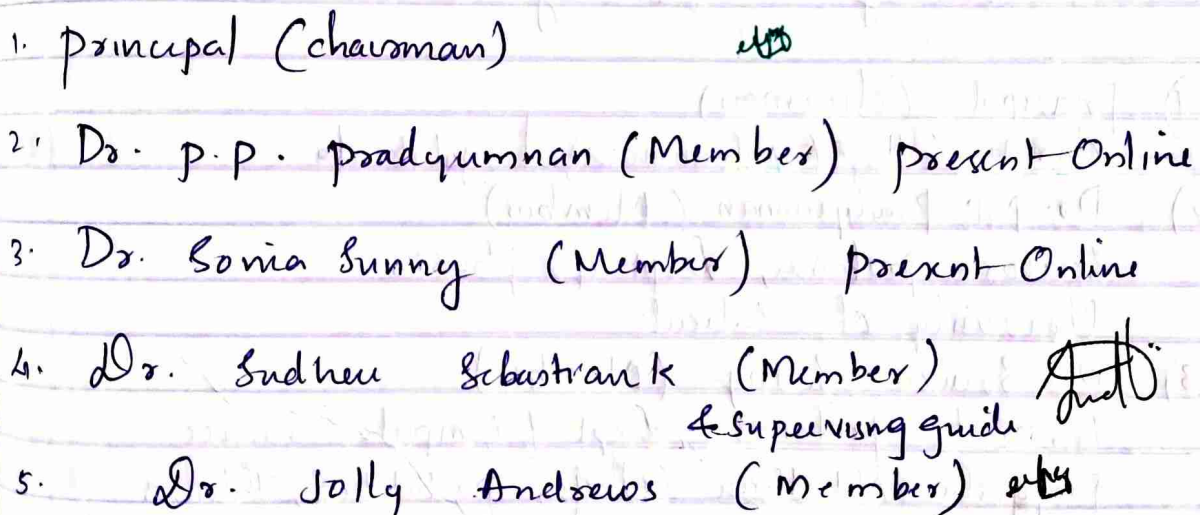 1. Principal (Chairman)
2. Dr. P.P. Pradyumnan (Member) present Online
3. Dr. Sonia Sunny (Member) present Online
4. Dr. Sudheer Sebastian K (Member)
& Supervising guide
5. Dr. Jolly Andrews (Member)